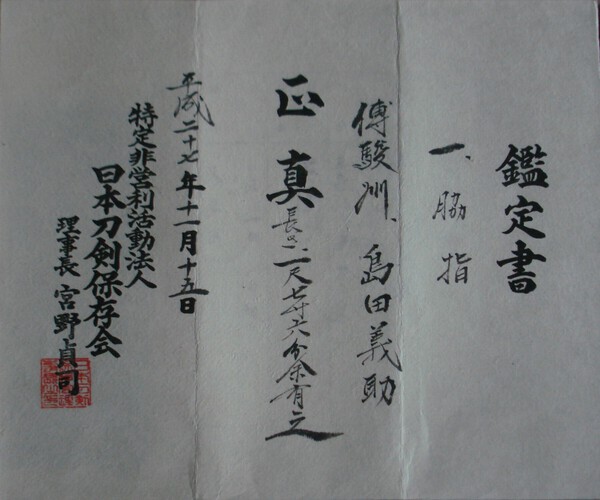 鑑定書
一、脇指
傳駿州、島田義助
正真
長サ、一尺七寸六分余有之
平成二十七年十一月十五日
特定非営利活動法人
日本刀剣保存会
理事長 宮野貞司